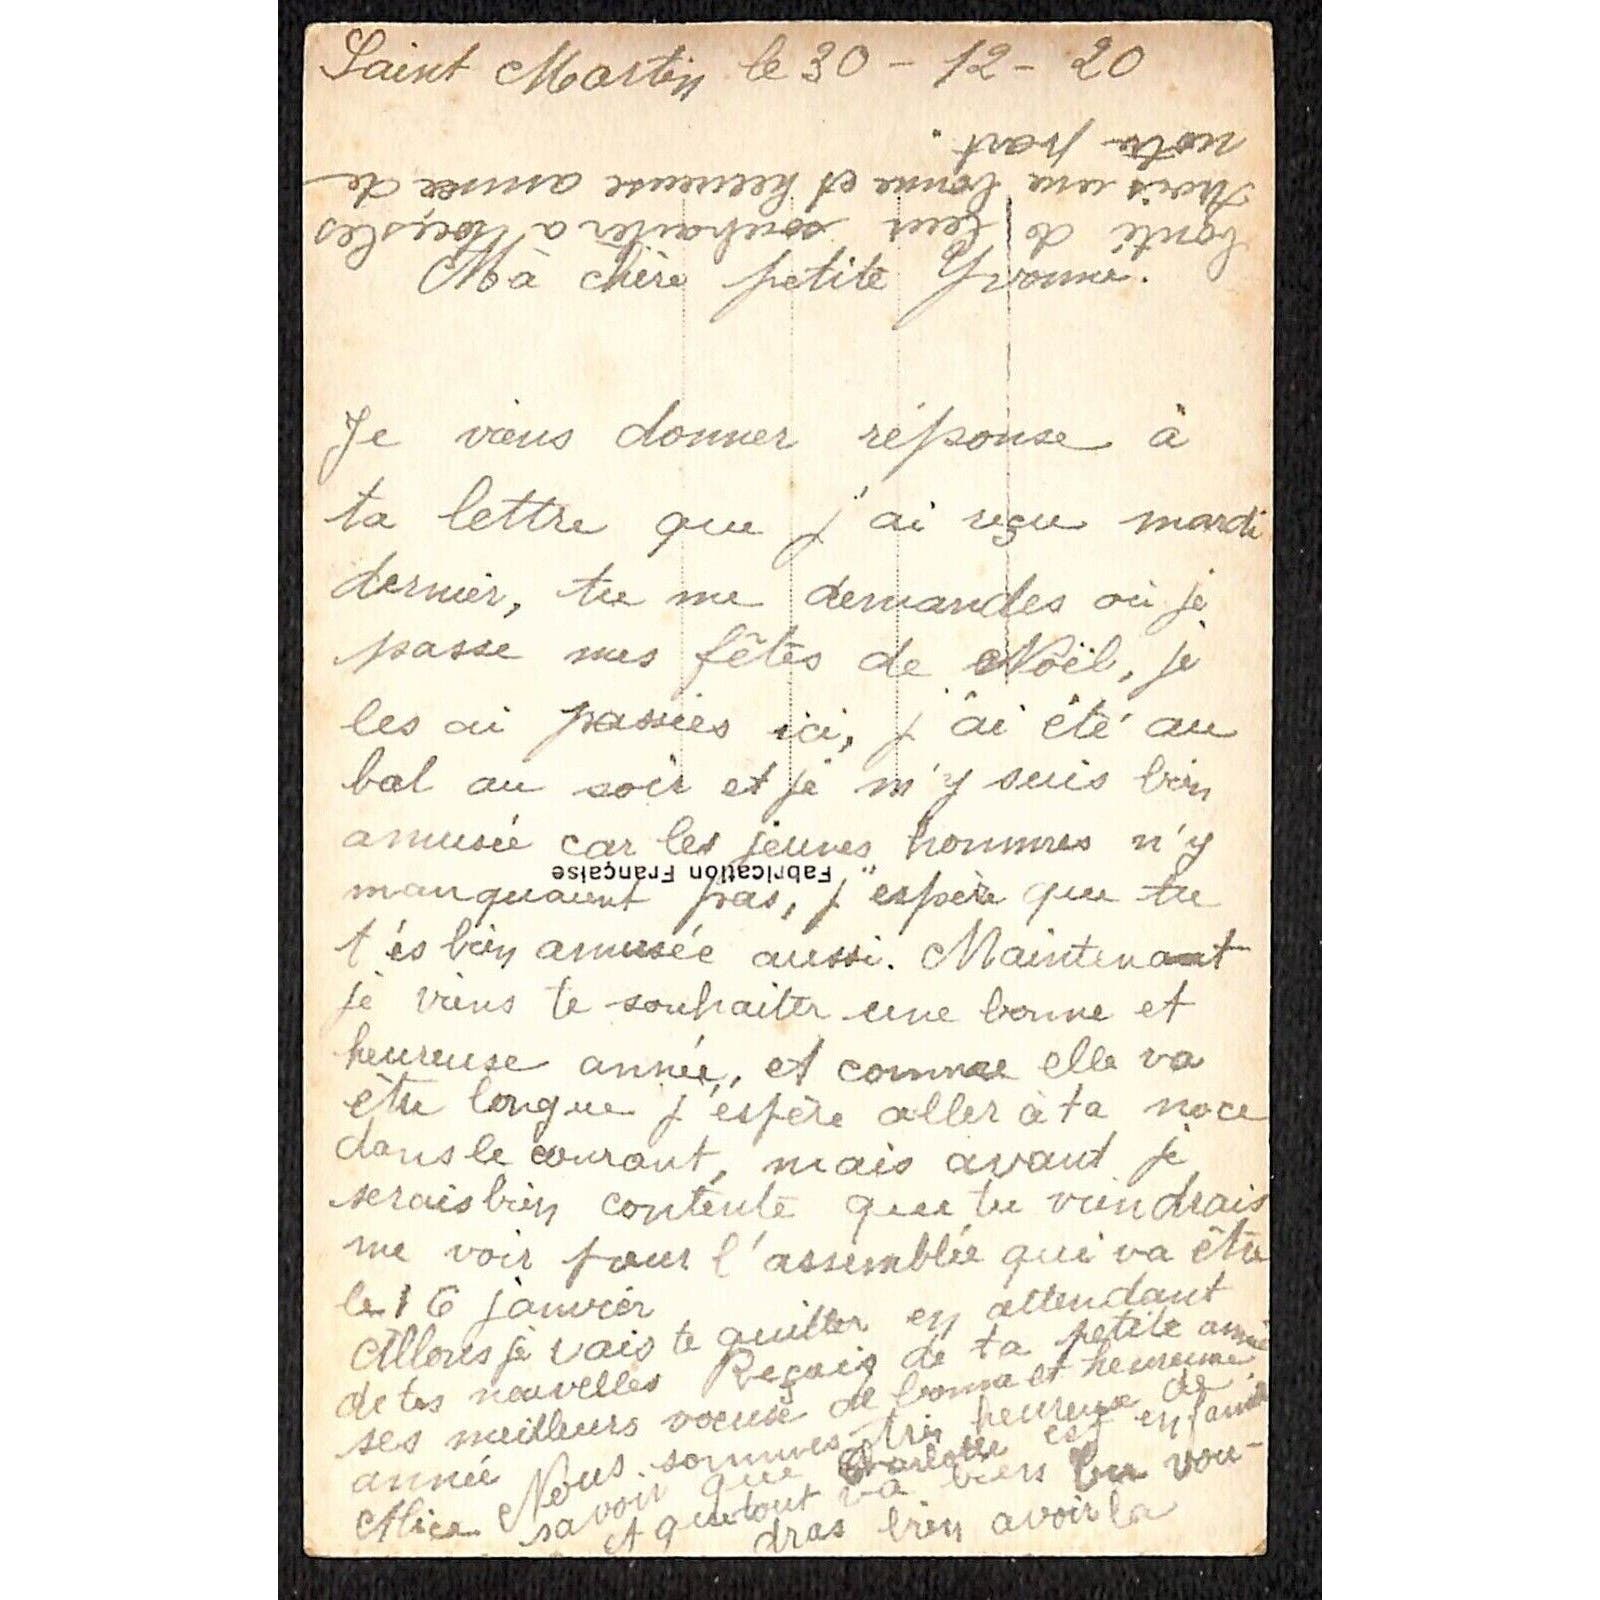 Saint Martin le 30 - 12 - 20
Mà chère petite Yvonne.
Je viens donner réponse à
ta lettre que j'ai reçu mardi
dernier, tu me demandes où je
passe mes fêtes de Noël, je
les ai passées ici, j'ai été au
bal au soir et je m'y suis bien
amusée car les jeunes hommes n'y
manquaient pas, j'espère que tu
t'és bien amusée aussi. Maintenant
je viens te souhaiter une bonne et
heureuse année, et comme elle va
être longue j'espère aller à ta noce
dans le courant, mais avant je
serais bien contente que tu viendrais
me voir pour l'assemblée qui va être
le 16 janvier
Allons je vais te quitter en attendant
de tes nouvelles Reçois de ta petite amie
ses meilleurs voeuse de bonne et heureuse
année
Alice Nous sommes très heureuse de
savoir que Charlotte est en famille
et que tout va bien tu vou-
dras bien avoir la
bonté de leur souhaiter à tous les
trois une bonne et heureuse année de
notre part.
Fabrication Française